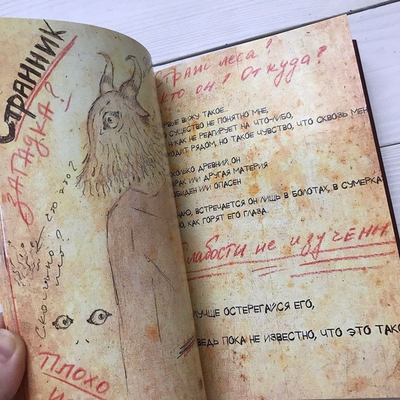 СТРАННИК
ЗАГАДКА?
Сколько
лет?
Плохо
Страж леса?
Кто он? Откуда?
ВИЖУ ТАКОЕ...
СУЩЕСТВО НЕ ПОНЯТНО МНЕ,
НИКАК НЕ РЕАГИРУЕТ НА ЧТО-ЛИБО,
РЯДОМ, НО ТАКОЕ ЧУВСТВО, ЧТО СКВОЗЬ МЕН
ДРЕВНИЙ ОН
ИЛИ ДРУГАЯ МАТЕРИЯ
ИЛИ ОПАСЕН
ВСТРЕЧАЕТСЯ ОН ЛИШЬ В БОЛОТАХ, В СУМЕРКА
КАК ГОРЯТ ЕГО ГЛАЗА.
лабости не изученн
ЛУЧШЕ ОСТЕРЕГАЙСЯ ЕГО,
ВЕДЬ ПОКА НЕ ИЗВЕСТНО, ЧТО ЭТО ТАКО